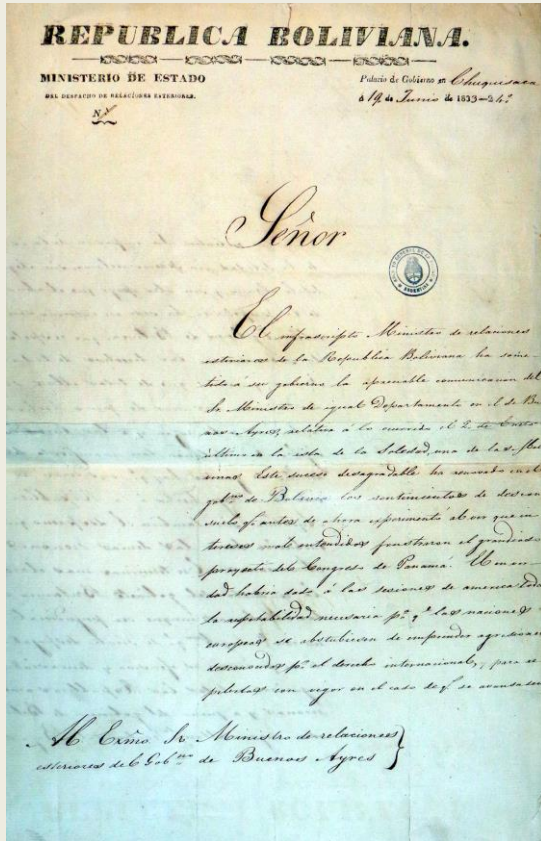 REPUBLICA BOLIVIANA.
MINISTERIO DE ESTADO
DEL DESPACHO DE RELACIONES ESTERIORES.
Palacio de Gobierno en Chuquisaca
á 19 de Junio de 1833—24º
Señor
El infrascripto Ministro de relaciones
esteriores de la Republica Boliviana ha some-
tido a su gobierno la apreciable comunicacion del
Sr Ministro de igual Departamento en el de Bue-
nos Ayres, relativa á lo ocurrido el 2 de Enero
ultimo en la isla de la Soledad, una de las Mal-
vinas. Este suceso desagradable ha renovado en el
gobno de Bolivia los sentimientos de descon-
suelo qe antes de ahora esperimentó al ver que in-
tereses mal entendidos frustraron el grandioso
proyecto del Congreso de Panamá. El
habria dado á las secciones de america toda
la respetabilidad necesaria pa qe las naciones
europeas se abstubiesen de emprender agresiones
desconocidas pr el derecho internacional, para re-
pelerlas con vigor en el caso de qe se
Al Exmo Sr Ministro de relaciones
esteriores del Gobno de Buenos Ayres